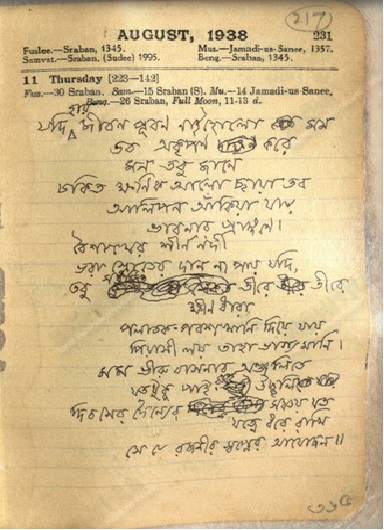 217
AUGUST, 1938 231
Fuslee.—Sraban, 1345. Mus.—Jamadi-us-Sanee, 1357.
Samvat.—Sraban, (Sudee) 1995. Beng.—Sraban, 1345.
11 Thursday [223—142]
Fus.—30 Sraban. Sam.—15 Sraban (S). Mu.—14 Jamadi-us-Sanee,
Beng.—26 Sraban, Full Moon, 11-13 d.
যদি হায় জীবন পূরণ নাই হোলো মম
তব অকৃপণ করে
মন তবু জানে
চকিত ক্ষণিক আলো ছায়া তব
আলিপন আঁকিয়া যায়
ভাবনার প্রাঙ্গণে।
বৈশাখের শীর্ণ নদী
ভরা স্রোতের দান না পায় যদি,
তবু তীরে তীরে
ক্ষীণ ধারা
পলাতক পরশখানি দিয়ে যায়
পিয়াসী লয় তাহা ভাগ্য মানি।
মম ভীরু বাসনার অঞ্জলিতে
যতটুকু পাই উচ্ছলিতে
দিবসের দৈন্যের সঞ্চয় যত
যত্নে ধরে রাখি
সে যে রজনীর স্বপ্নের আয়োজন॥